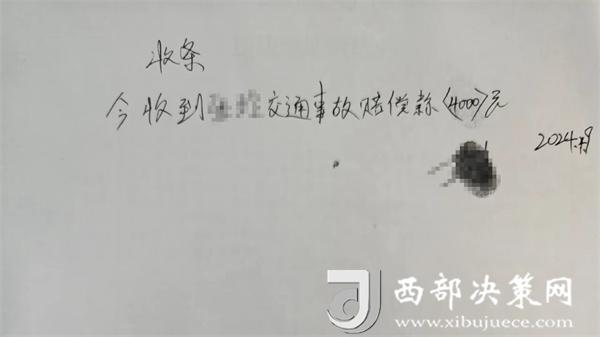 收条
今收到 交通事故赔偿款(4000)元
2024.
西部决策网
www.xibujuece.com